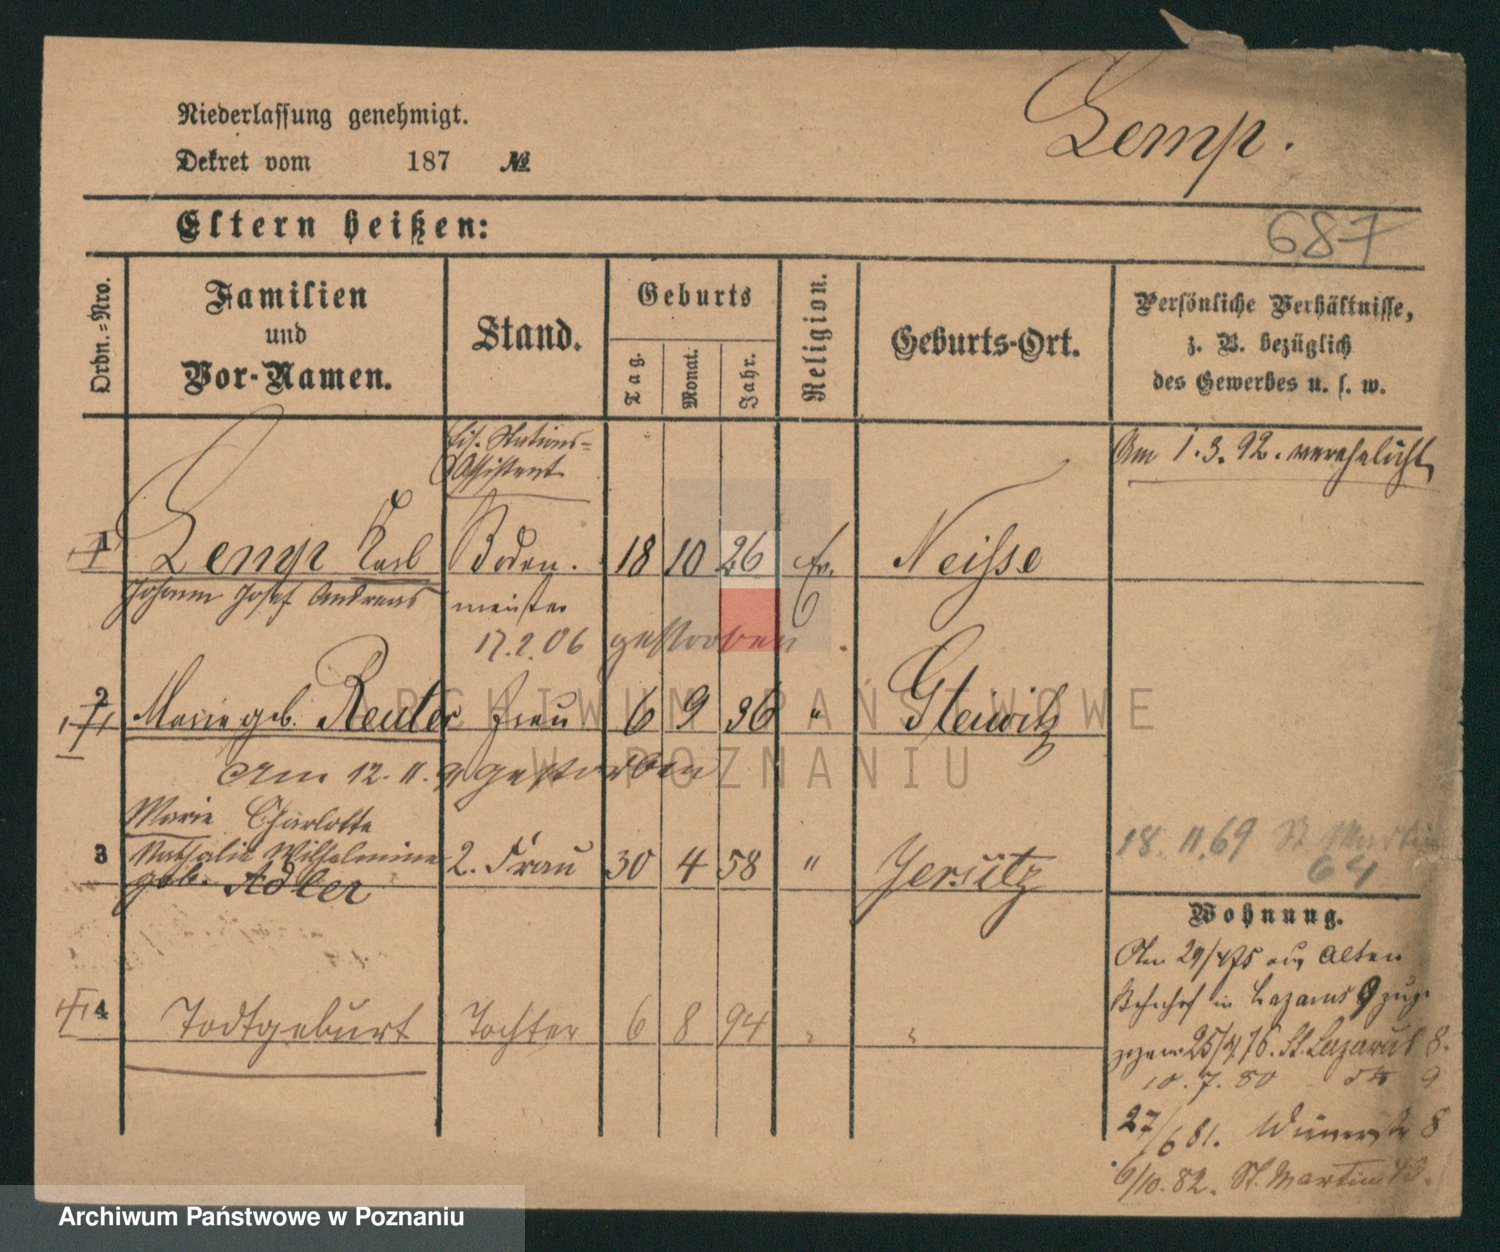 Lemp.
Niederlassung genehmigt.
Dekret vom 187 №
687
Eltern heißen:
Ordn.-Nro.
Familien
und
Vor-Namen.
Stand.
Geburts
Tag.
Monat.
Jahr.
Religion.
Geburts-Ort.
Persönliche Verhältnisse,
z. B. bezüglich
des Gewerbes u. s. w.
Eis. Stations-
Assistent
Am 1.3.92. verehelicht
1 Lemp Karl Boden. 18 10 26 Ev. Neisse
Johann Josef Andreas meister
17.2.06 gestorben.
2 Marie geb. Reuter Frau 6 9 36 " Gleiwitz
Am 12. 11. gestorben
Marie Charlotte
3 Nathalie Wilhelmine 2. Frau 30 4 58 " Jersitz
geb. Adler
18. 11. 69 St. Martin
64
Wohnung.
Am 29/4 75 aus Alten
Bahnhof in Lazarus 9 zuge
zogen 25/4 76. St. Lazarus 8.
10. 7. 80 9
27/6 81. 8
6/10. 82. St. Martin 43.
4 Todtgeburt Tochter 6 8 94 " "
ARCHIWUM PAŃSTWOWE
W POZNANIU
Archiwum Państwowe w Poznaniu